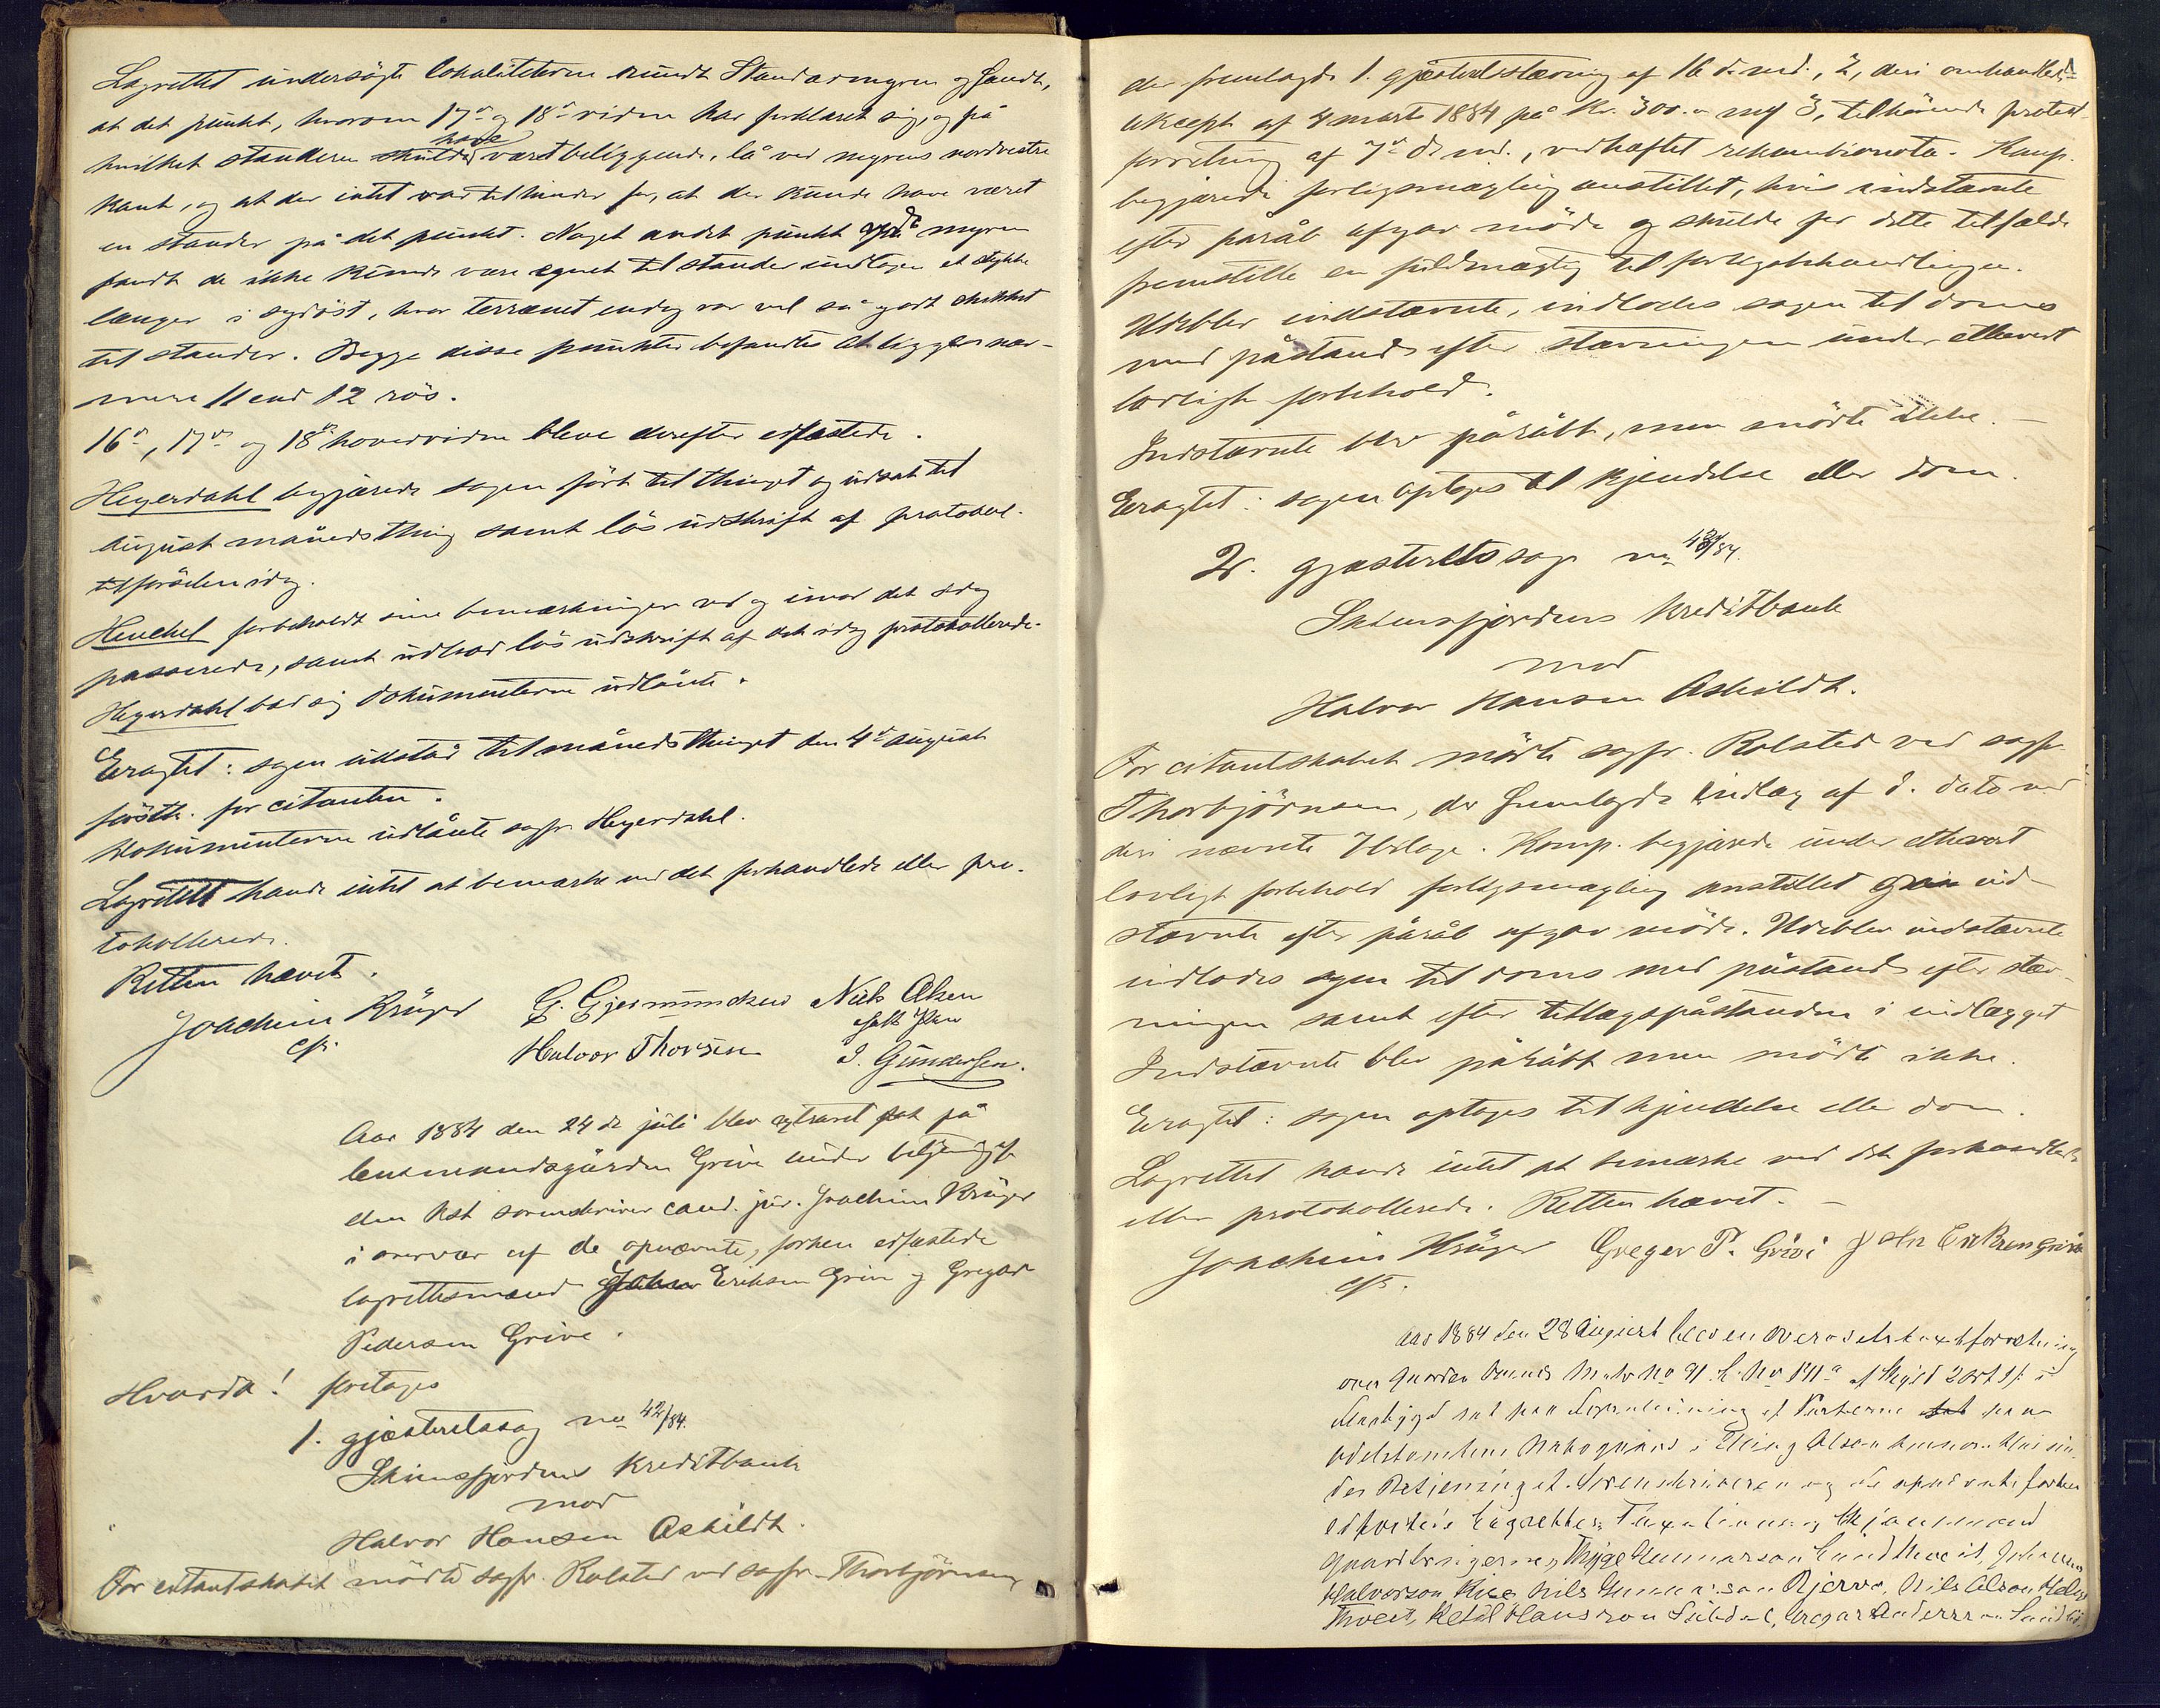 Lagrettet undersögte lokaliteterne rundt Standarmyren og fandt,
at det punkt, hvorom 17de og 18de vidne har forklaret sig, og på
hvilket standeren skulde have været beliggende, lå ved myrens nordvestre
kant, og at der intet var til hinder for, at der kunde have været
en stander på det punkt. Noget andet punkt på myren
fandt de ikke kunde være egnet til stander undtagen et stykke
længer i sydöst, hvor terrænet endog var vel så godt skikket
til stander. Begge disse punkter befandtes at ligge nær-
mere 11 end 12 rös.
16de, 17de og 18de hovedvidne bleve derefter edfæstede.
Heyerdahl begjærede sagen fört til thinget og udsat til
august månedsthing samt lös udskrift af protokol-
tilförselen idag.
Henchel forbeholdt sine bemærkninger ved og imod det idag
passerede, samt udbad lös udskrift af det idag protokollerede.
Heyerdahl bad sig dokumenterne udlånte.
Eragtet: sagen udstår til månedsthinget den 4de august
förstk. for citanten.
Dokumenterne udlånte sagf. Heyerdahl.
Lagrettet havde intet at bemærke ved det forhandlede eller pro-
tokollerede.
Retten hævet.
Joachim Krüger G. Gjermundsen Niels Olsen
cst. Halvor Thorsen J. Gundersen.
Aar 1884 den 24de juli blev extraret sat på
lensmandsgården Grive under betjening af
den kst sorenskriver cand. jur. Joachim Krüger
i overvær af de opnævnte, forhen edfæstede
lagrettesmænd John Eriksen Grive og Gregar
Pedersen Grive.
Hvorda! foretages
1. gjæsteretssag no 42/84.
Skiensfjordens kreditbank
mod
Halvor Hansen Askildt.
For citantskabet mödte sagf. Rolsted ved sagf. Thorbjörnsen
der fremlagde 1. gjæsteretsstævning af 16 d. md., 2, deri omhandlede
aksept af 4 marts 1884 på Kr. 300.- og 3, tilhörende protest
forretning af 7de d. md., vedhæftet rekambionota. Komp.
begjærede forligsmægling anstillet, hvis indstævnte
efter påråb afgav möde og skulde for dette tilfælde
fremstille en fuldmægtig til forligsbehandlingen.
Udeblev indstævnte, indlodes sagen til doms
med påstand efter stævningen under ethvert
lovligt forbehold.
Indstævnte blev påråbt, men mödte ikke. -
Eragtet: sagen optages til kjendelse eller dom.
2. gjæsteretssag no 43/84.
Skiensfjordens kreditbank
mod
Halvor Hansen Askildt.
For citantskabet mödte sagf. Rolsted ved sagf.
Thorbjörnsen, der fremlagde indlæg af d. dato med
deri nævnte bilage. Komp. begjærede under ethvert
lovligt forbehold forligsmægling anstillet ind-
stævnte efter påråb afgav möde. Udeblev indstævnte
indlodes sagen til doms med påstand efter stæv-
ningen samt efter tillægspåstanden i indlægget
Indstævnte blev påråbt men mödte ikke.
Eragtet: sagen optages til kjendelse eller dom.
Lagrettet havde intet at bemærke ved det forhandlede
eller protokollerede. Retten hævet. -
Joachim Krüger Greger P. Grivi John Eriksen Grive
cst.
Aar 1884 den 28 August blev en Overodelstaxtforretning
over Gaarden Matr No 91 L. No 191a af Skyld 2 Ort i
sat paa af Parterne sat paa
Odelstomten Olsen
der Betjening af Sorenskriveren og de opnævnte forhen
edfæstede Lagrettes, Taxations og Skjønsmænd
Gaardbrugerne, Thyge Gunnarson Johannes
Halvorson Nils Gunnarson Bjerva, Nils Olson
Ketil Hansson Gregar Anderson